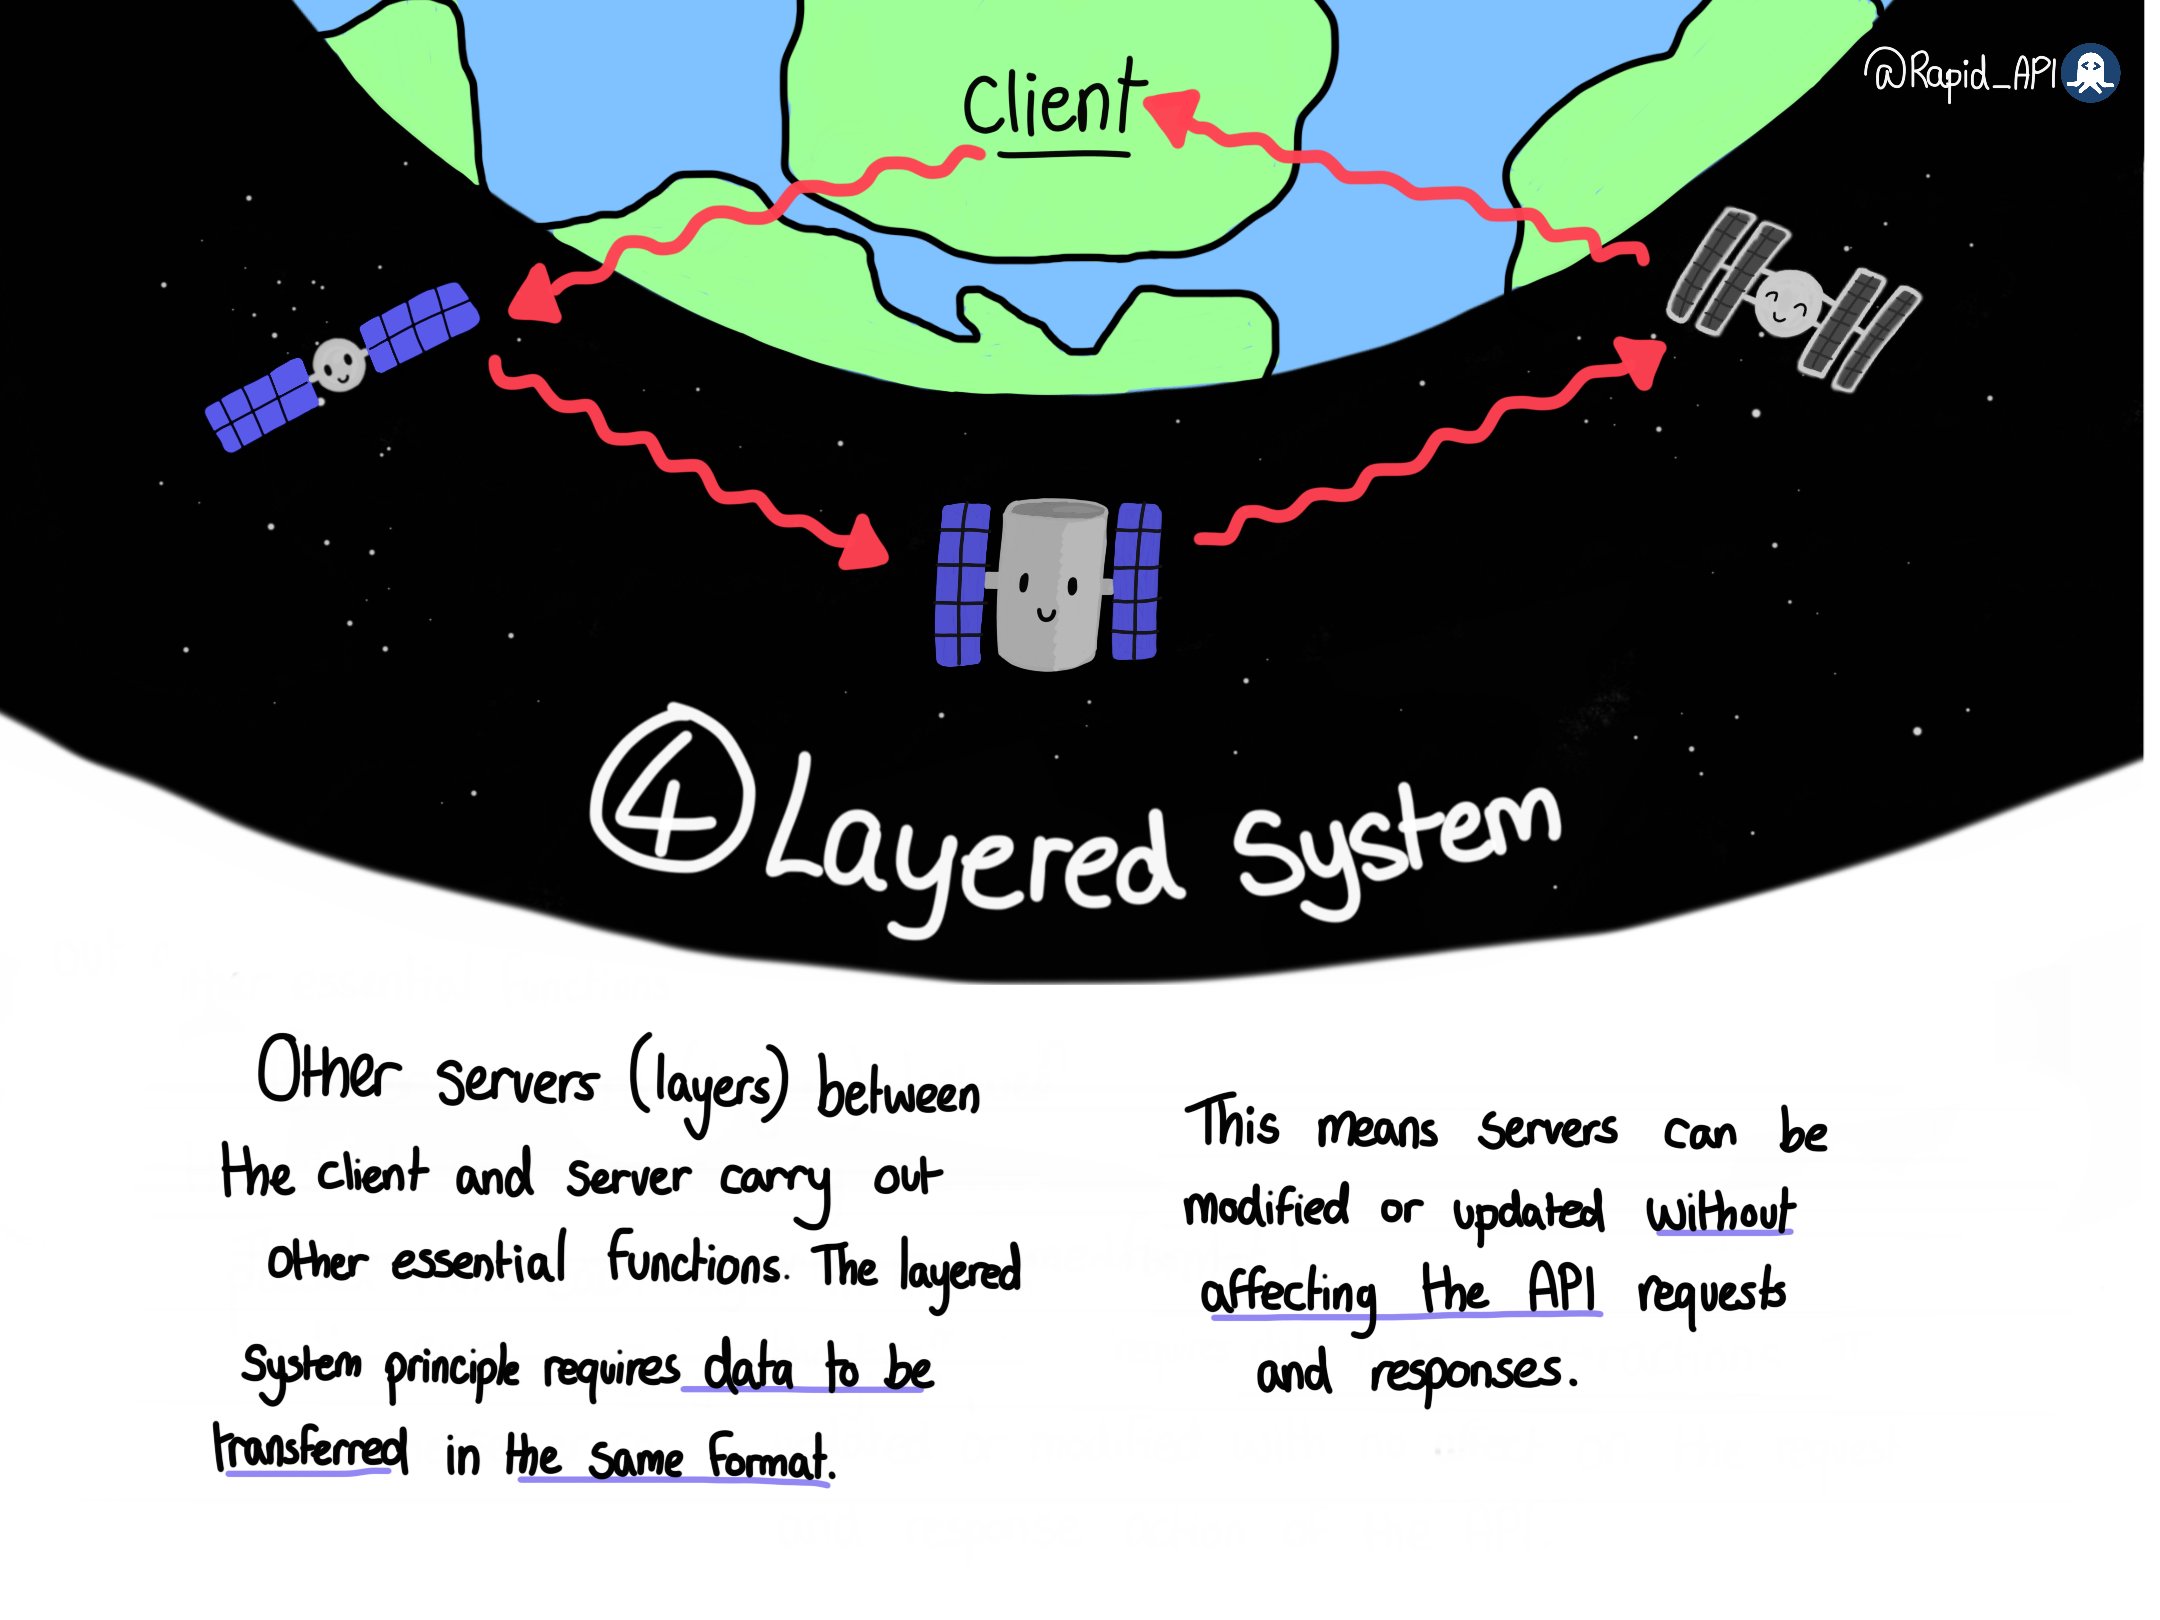 @Rapid_API
Client
4 Layered System
Other servers (layers) between
the client and server carry out
other essential functions. The layered
system principle requires data to be
transferred in the same format.
This means servers can be
modified or updated without
affecting the API requests
and responses.